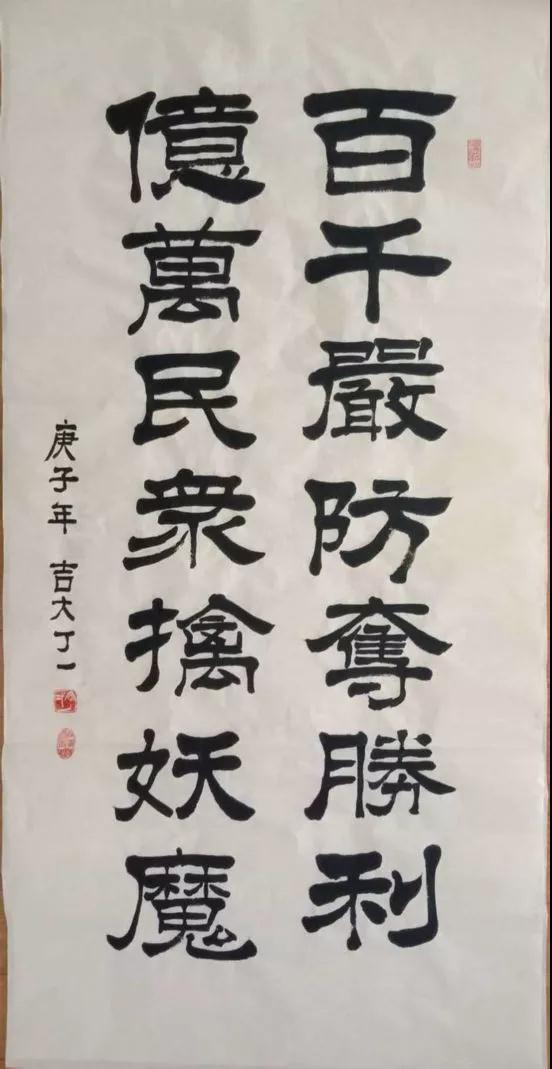 百千嚴防奪勝利
億萬民衆擒妖魔
庚子年 吉大丁一